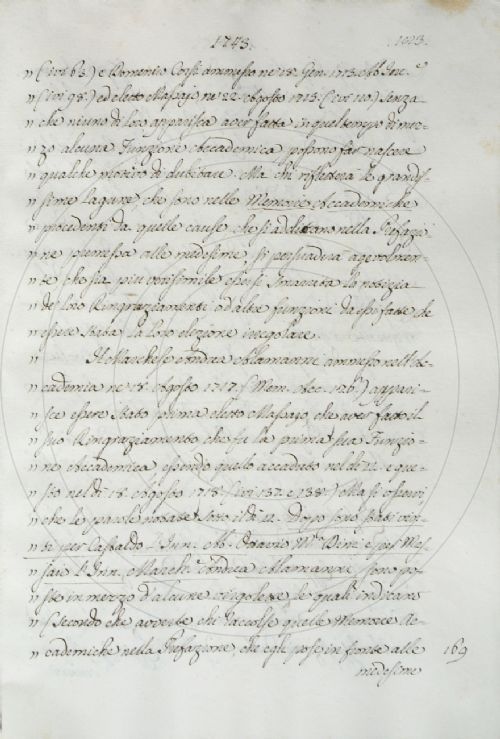 1743. 103.
" (ivi 63.) e Domenico Corsi ammesso ne 18. Gen. 1713. Ab Inc.e
" (ivi 98.) ed eletto Massajo ne 22. Agosto 1715. (ivi 110) senza
" che niuno di loro apparisca aver fatta in quel tempo di mez-
" zo alcuna Funzione Accademica possono far nascere
" qualche motivo di dubitare. Ma chi rifletterà le grandis-
" sime lagune, che sono nelle Memorie Accademiche
" procedenti da quelle cause, che si additano nella Prefazio
" ne premessa alle medesime, si persuaderà agevolmen-
" te che sia più verisimile essersi smarrita la notizia
" de' loro Ringraziamenti, o d'altre funzioni da essi fatte, che
" essere stata la loro elezione irregolare.
" Il Marchese Andrea Alamanni ammesso nell'Ac-
" cademia ne 18. Agosto 1717. (Mem. Acc. 126.) appari-
" sce essere stato prima eletto Massajo, che aver fatto il
" suo Ringraziamento che fu la prima sua Funzio-
" ne Accademica, essendo quello accaduto nel dì 11. e que-
" sto nel dì 18. Agosto 1718. (ivi 137. e 138.) Ma si osservi,
" che le parole notate sotto il dì 11. Dopo sono stati vin-
" ti per Castaldo l'Inn. Ab. Ottavio M.a Bini e per Mas-
" saio l'Inn. March.e Andrea Alamanni, sono po-
" ste in mezzo d'alcune virgolette, le quali indicano
" (secondo che avverte chi raccolse quelle Memorie Ac-
" cademiche nella Prefazione, che egli pose in fronte alle
medesime
169